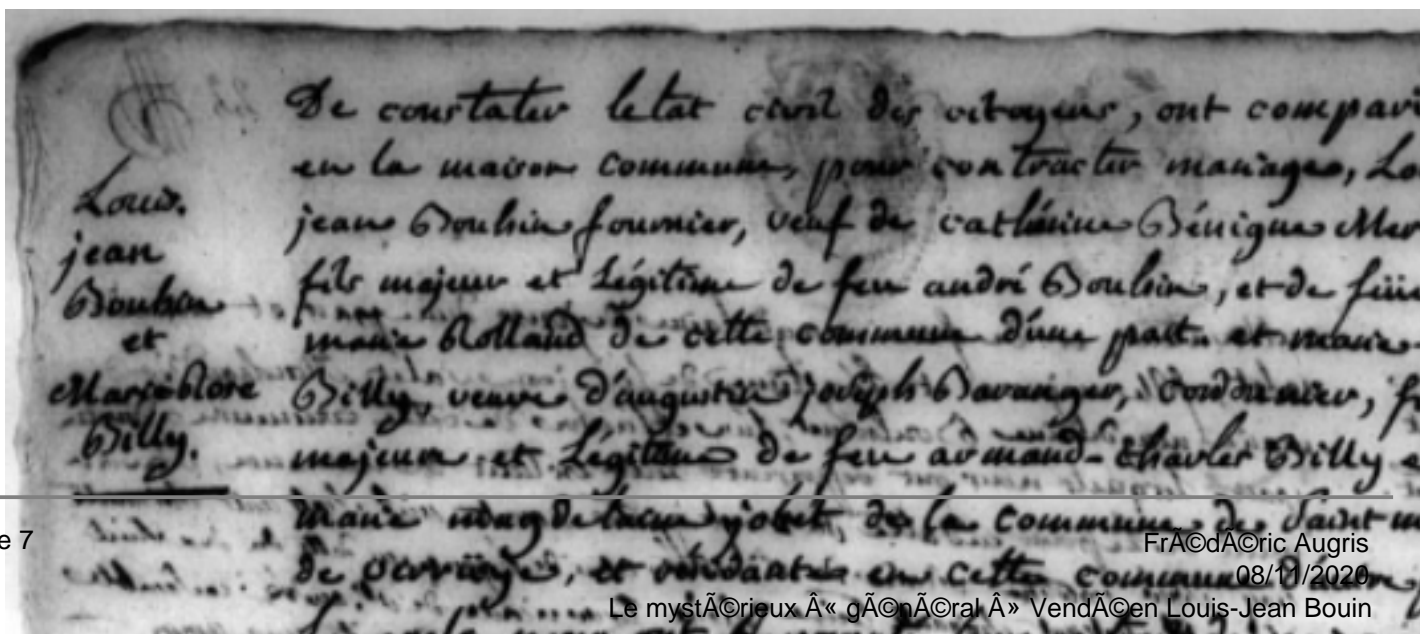 Louis
jean
Boubin
et
Marie Rose
Billy.
De constater letat civil des citoyens, ont compar
en la maison commune, pour contracter mariage, Lo
jean Boubin fournier, veuf de catherine Bénigne Mer
fils majeur et Légitime de feu andré Boubin, et de feüe
marie Rolland de cette commune d'une part. et marie
Billy, veuve d'augustin joseph Bavanger, cordonnier, f
majeure et Légitime de feu armand-Charles Billy e
marie magdelaine jobet de la commune de Saint m
de et résidante en cette commune
e 7
FrÃ©dÃ©ric Augris
08/11/2020
Le mystÃ©rieux Â« gÃ©nÃ©ral Â» VendÃ©en Louis-Jean Bouin